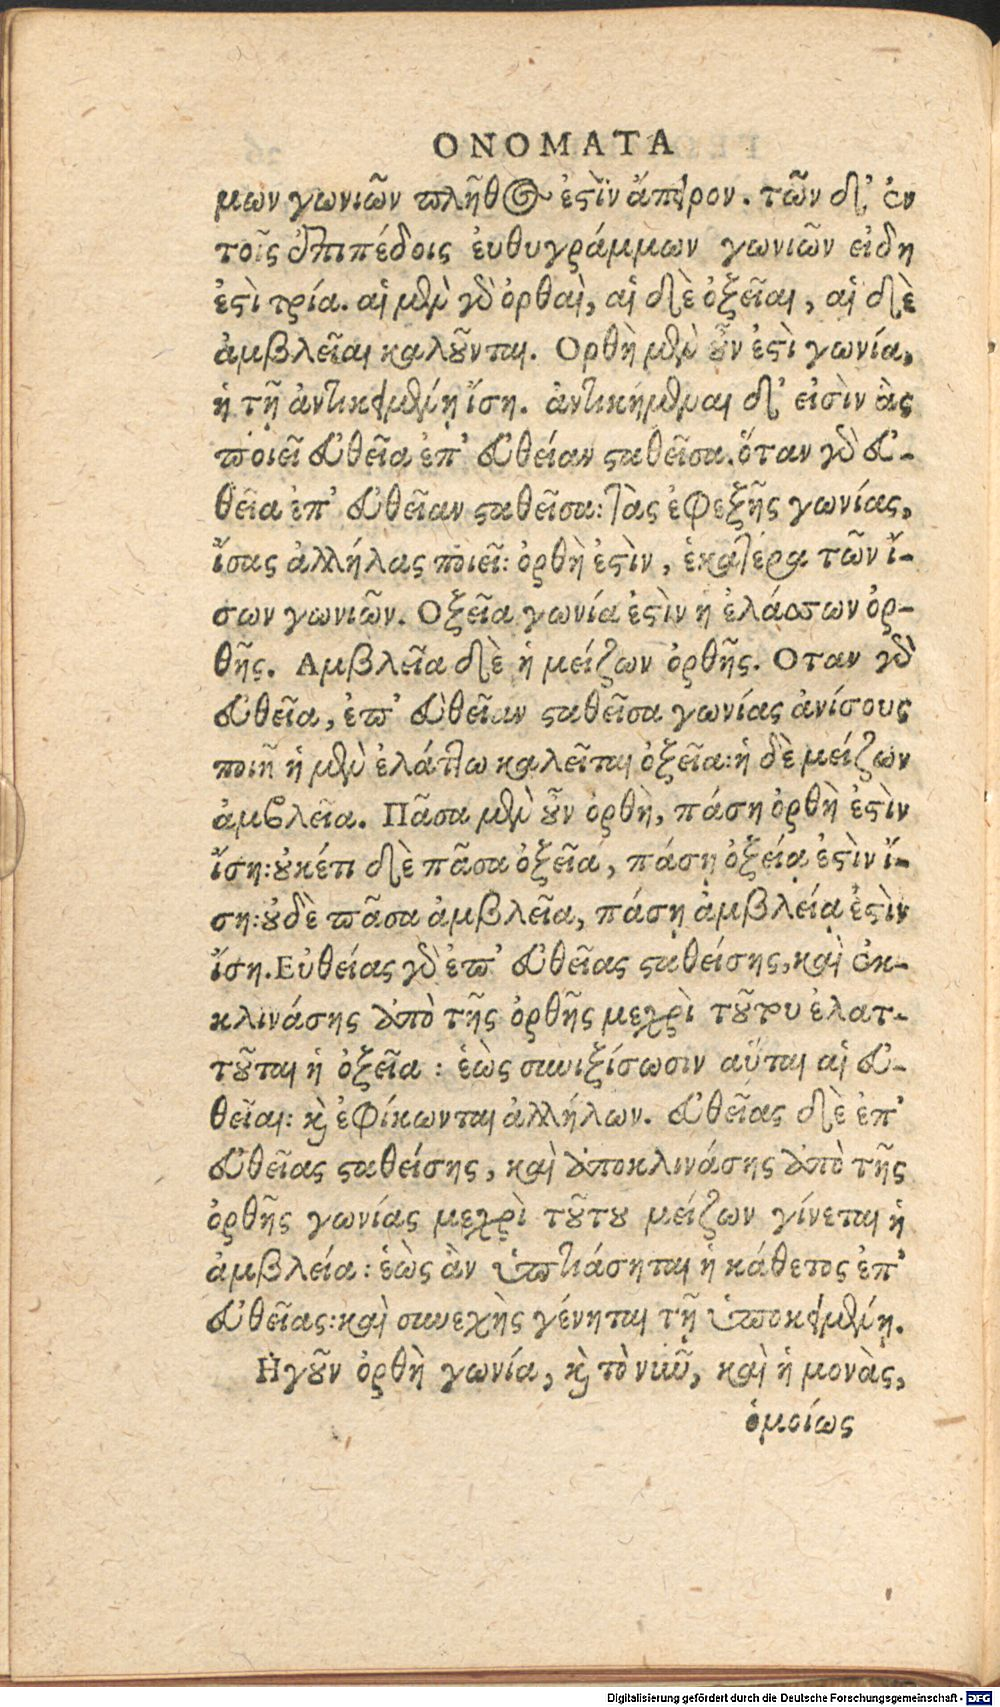 ΟΝΟΜΑΤΑ
μων γωνιῶν πλῆθος ἐςὶν ἄπειρον. τῶν δ' ἐν
τοῖς ἐπιπέδοις ἐυθυγράμμων γωνιῶν εἰδη
ἐςὶ τρία. αἱ μὲν γὸ ὀρθαὶ, αἱ δὲ ὀξεῖαι, αἱ δὲ
ἀμβλεῖαι καλοῦνται. Ορθὴ μὲν οὖν ἐςὶ γωνία,
ἡ τῇ ἀντικειμένῃ ἴση. ἀντικήμεναι δ' εἰσὶν ἃς
ποιεῖ εὐθεῖα ἐπ' εὐθείαν ςαθεῖσα. ὅταν γὸ εὐ-
θεῖα ἐπ' εὐθεῖαν ςαθεῖσα: τὰς ἐφεξῆς γωνίας,
ἴσας ἀλλήλας ποιεῖ: ὀρθὴ ἐςὶν, ἑκατέρα τῶν ἴ-
σων γωνιῶν. Οξεῖα γωνία ἐςὶν ἡ ἐλάσσων ὀρ-
θῆς. Αμβλεῖα δὲ ἡ μείζων ὀρθῆς. Οταν γὸ
εὐθεῖα, ἐπ' εὐθεῖαν ςαθεῖσα γωνίας ἀνίσους
ποιῆ ἡ μὲν ἐλάττω καλεῖται ὀξεῖα: ἡ δὲ μείζων
ἀμβλεῖα. Πᾶσα μὲν οὖν ὀρθὴ, πάση ὀρθὴ ἐςὶν
ἴση: οὐκέτι δὲ πᾶσα ὀξεῖα, πάσῃ ὀξείᾳ ἐςὶν ἴ-
ση: οὐδὲ πᾶσα ἀμβλεῖα, πάσῃ ἀμβλείᾳ ἐςὶν
ἴση. Εὐθείας γὸ ἐπ' εὐθεῖας ςαθείσης, καὶ ἐκ-
κλινάσης ἀπὸ τῆς ὀρθῆς μεχρὶ τούτου ἐλατ-
τοῦται ἡ ὀξεῖα: ἑὼς συνιξίσωσιν αὗται αἱ εὐ-
θεῖαι: κὶ ἐφίκωνται ἀλλήλων. εὐθεῖας δὲ ἐπ'
εὐθεῖας ςαθείσης, καὶ ἀποκλινάσης ἀπὸ τῆς
ὀρθῆς γωνίας μεχρὶ τούτου μείζων γίνεται ἡ
ἀμβλεία: ἑὼς ἂν ὑπτιάσηται ἡ κάθετος ἐπ'
εὐθεῖας: καὶ συνεχὴς γένηται τῇ ὑποκειμένῃ.
Ηγοῦν ὀρθὴ γωνία, κὶ τὸ νιῦ, καὶ ἡ μονὰς,
ὁμοίως
Digitalisierung gefördert durch die Deutsche Forschungsgemeinschaft - DFG